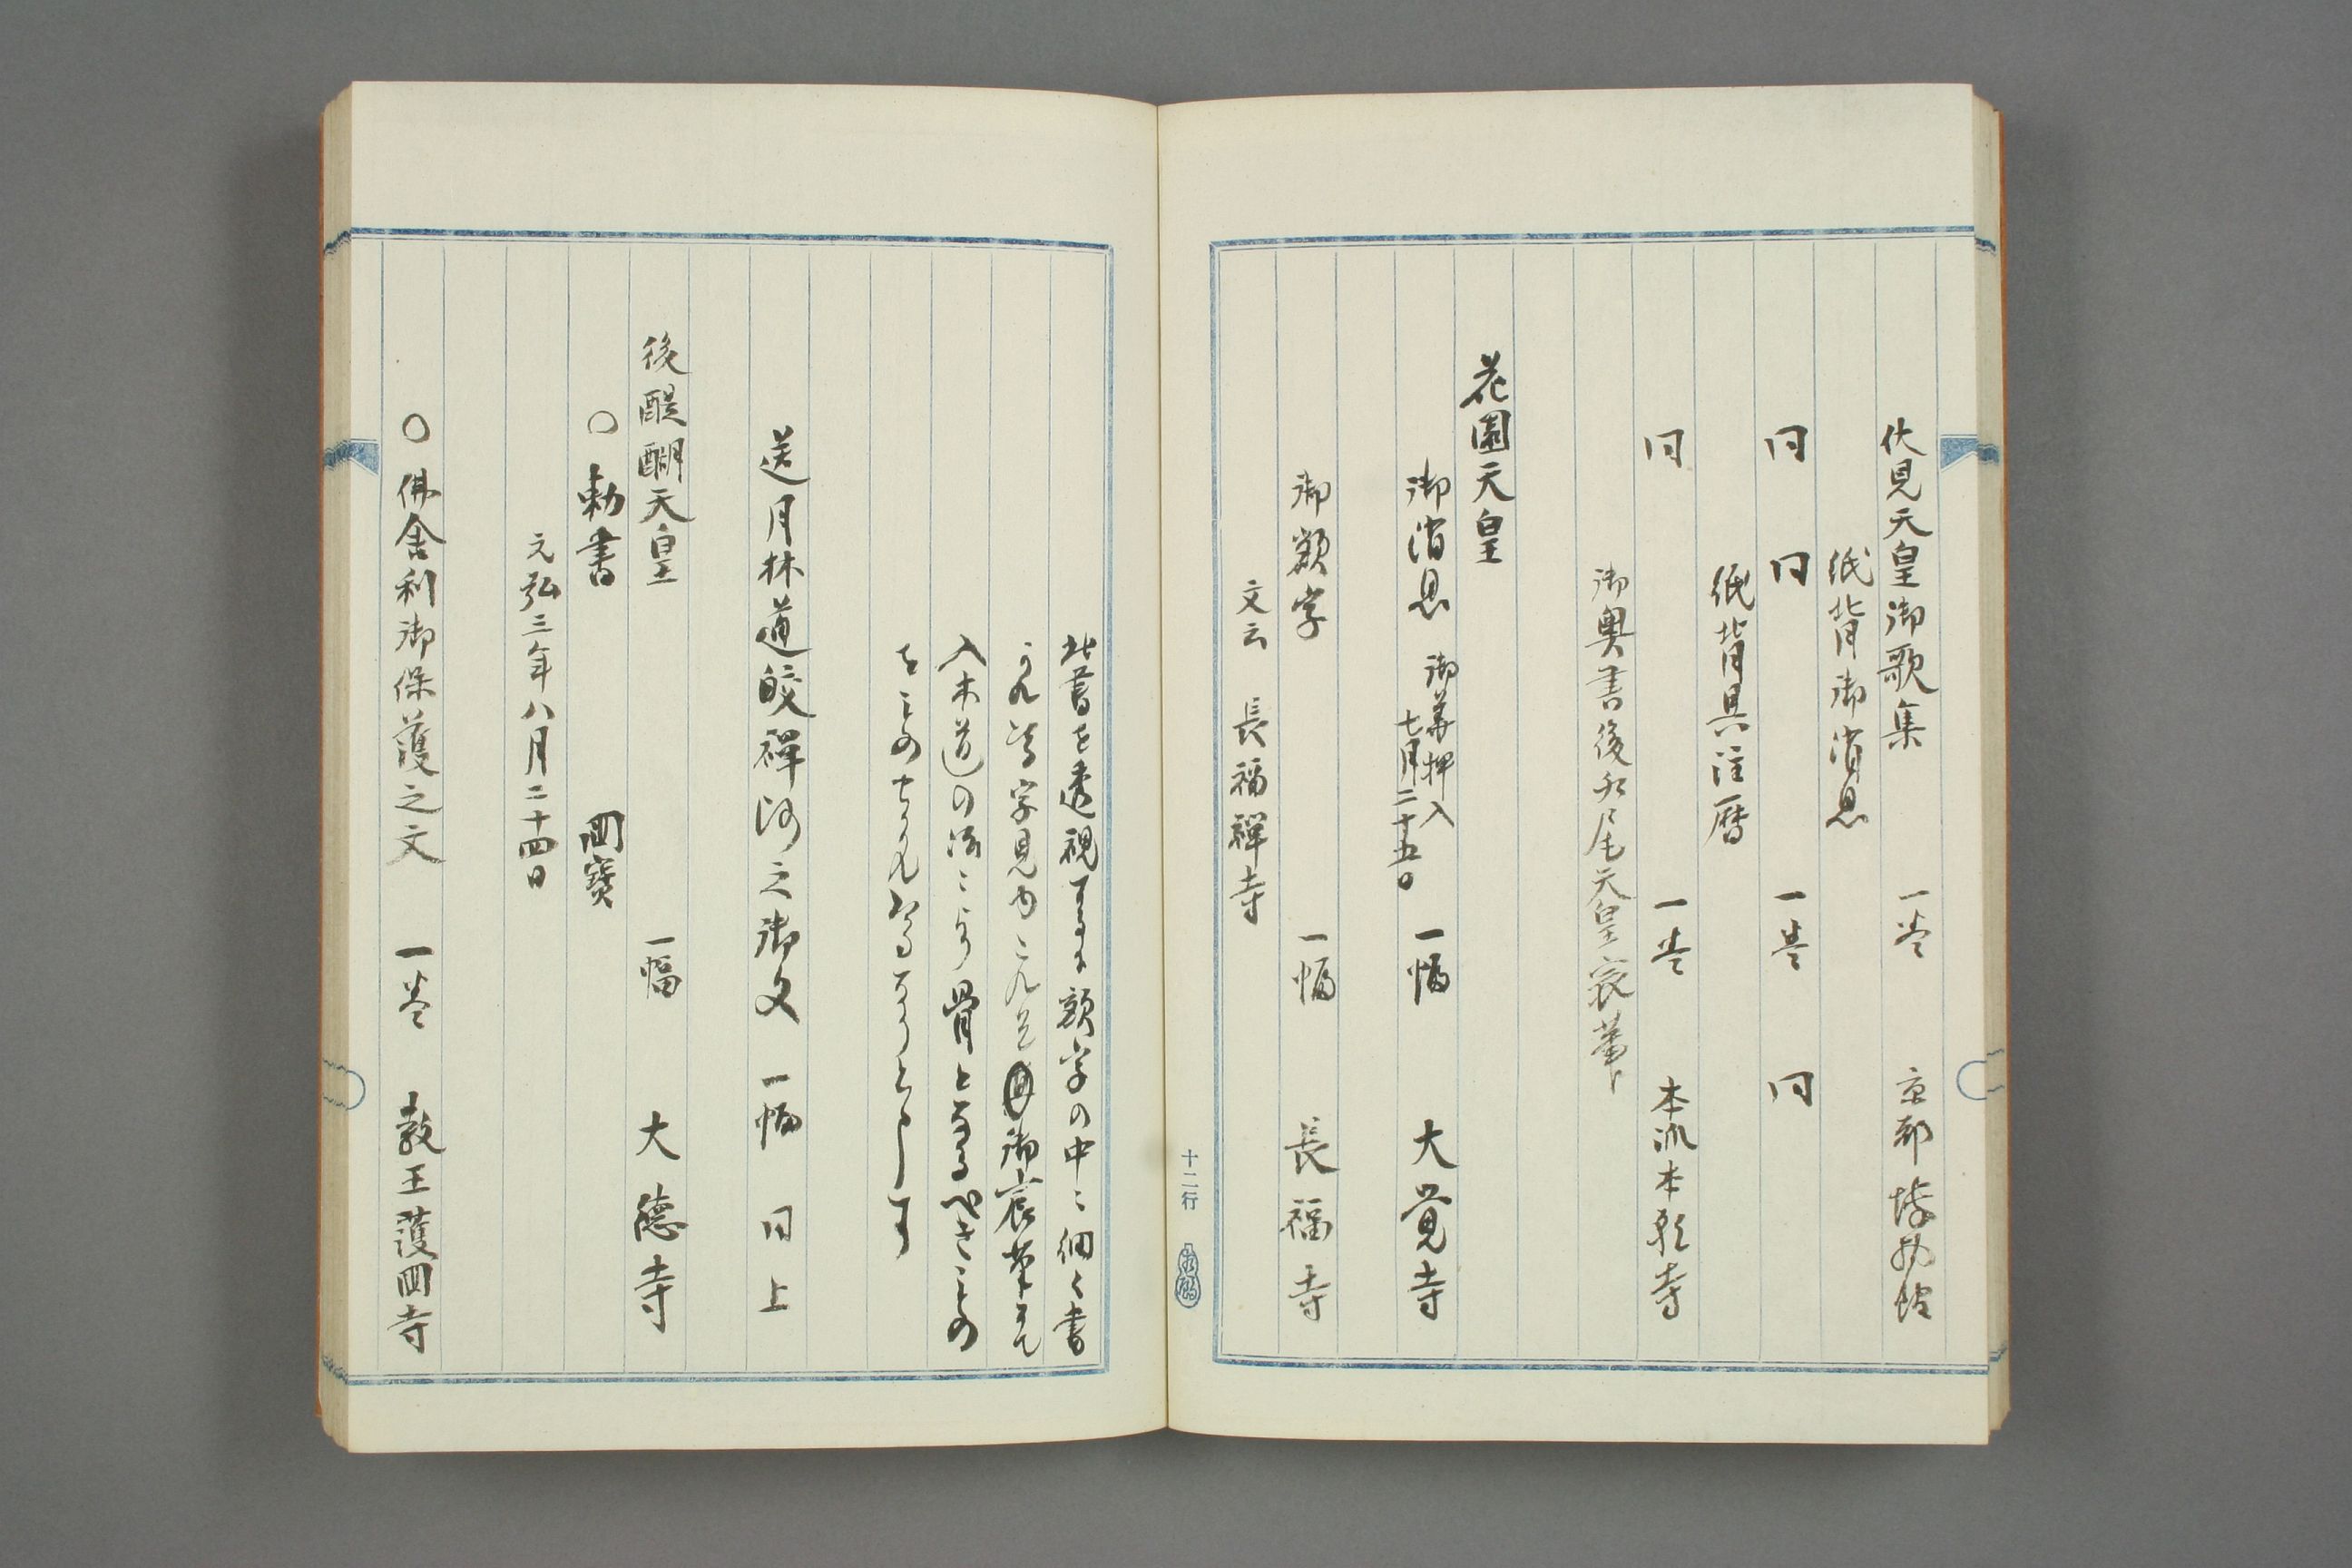 伏見天皇御歌集 一巻 京都
紙背御消息
同 同 一巻 同
紙背具注暦
同 一巻 本派本願寺
御奥書後水尾天皇宸筆
花園天皇
御消息 御華押入 七月二十五日 一幅 大覚寺
御額字 一幅 長福寺
文云 長福禅寺
十二行
此書を透視するに額字の中ニ細く書
かれ
入木道の法ニより骨となるべきことの

送月林道皎禅師之御文 一幅 同上
後醍醐天皇 一幅 大徳寺
○勅書 国寶
元弘三年八月二十四日
○佛舎利御保護之文 一巻 教王護国寺